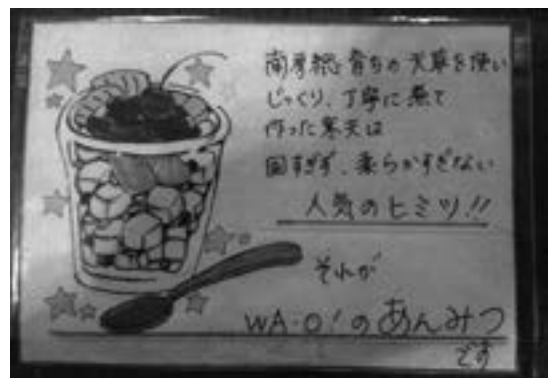 南房総育ちの天草を使い
じっくり、丁寧に煮て
作った寒天は
固すぎず、柔らかすぎない
人気のヒミツ!!
それが
WA・O!のあんみつ
です